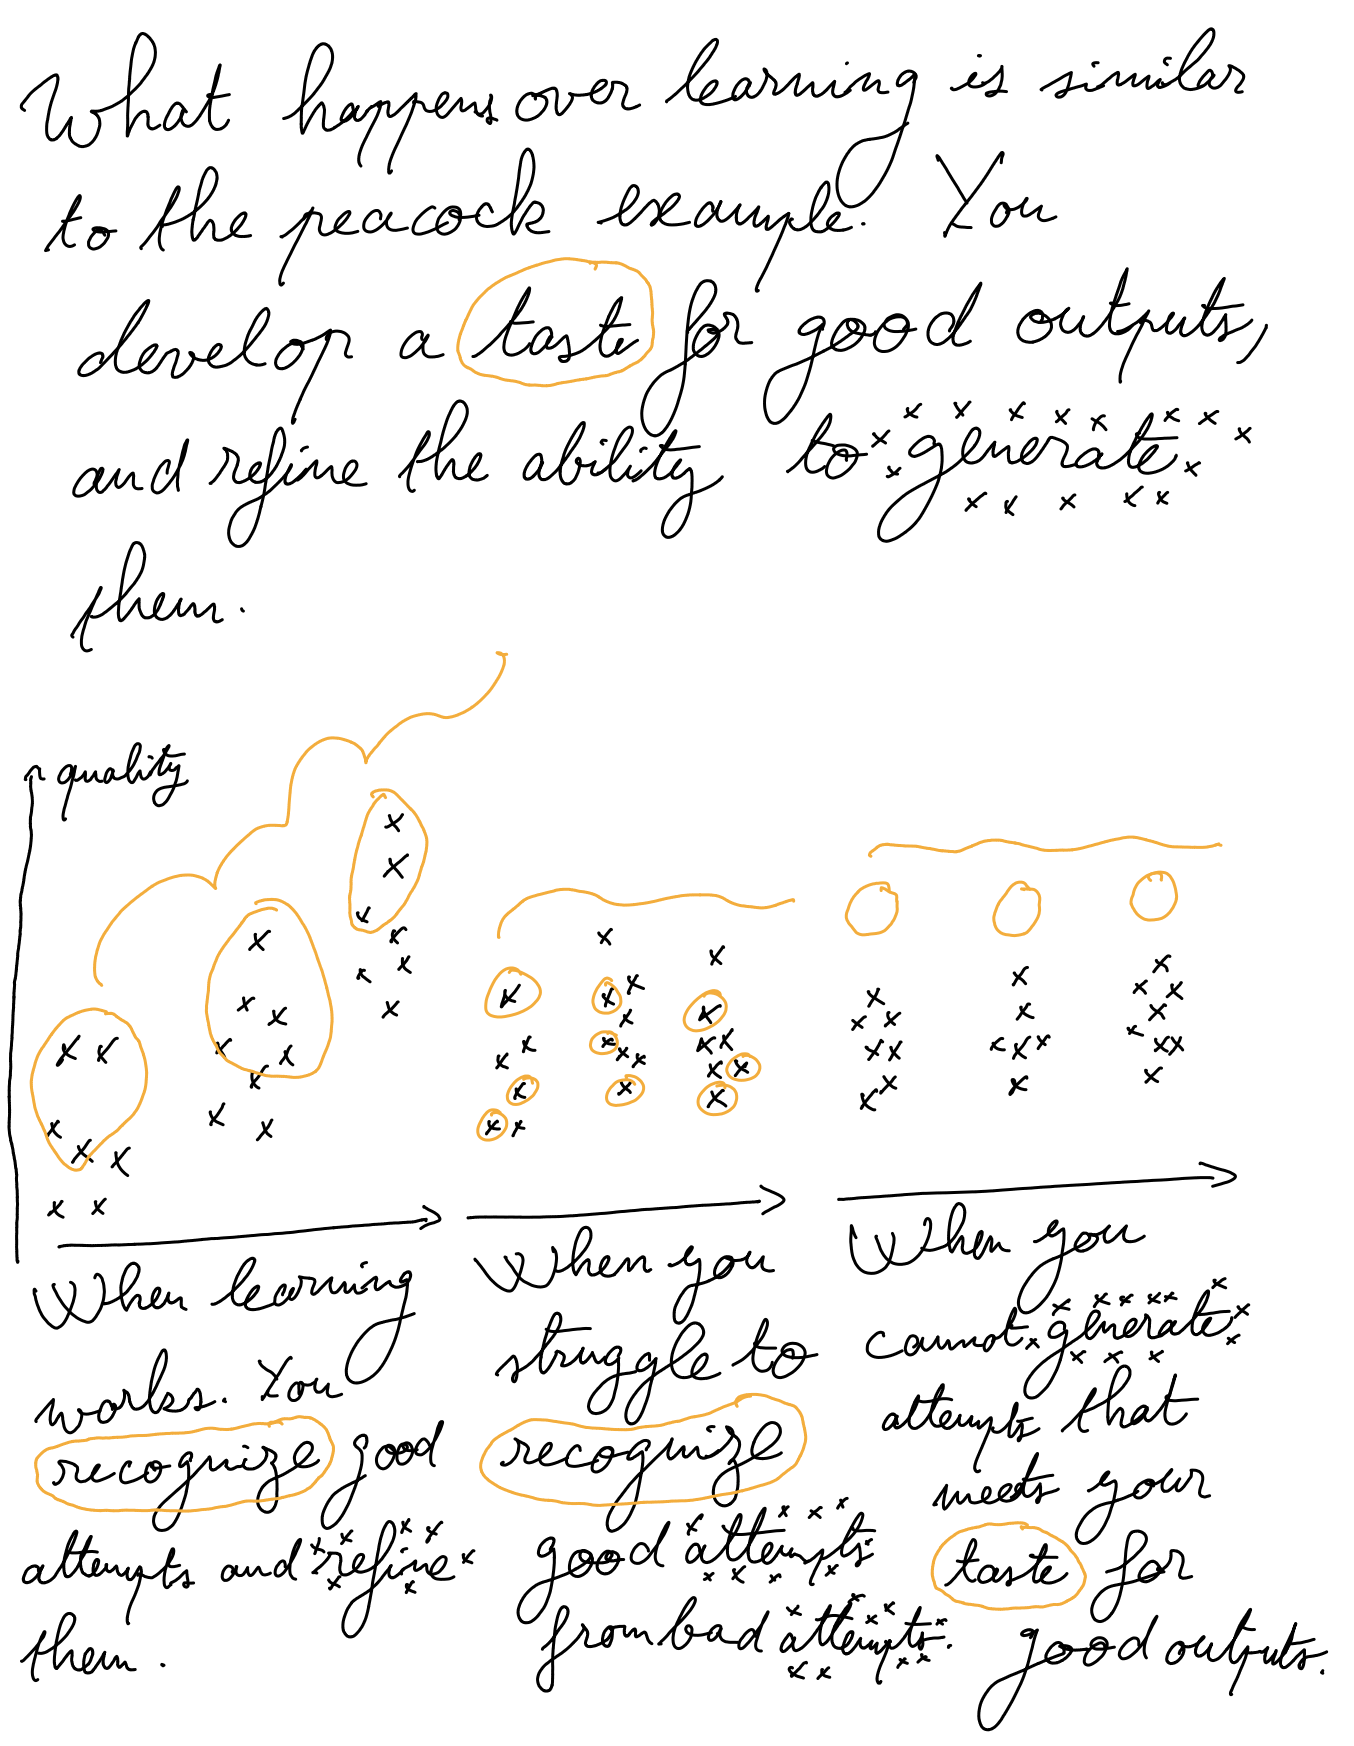 What happens over learning is similar
to the peacock example. You
develop a taste for good outputs,
and refine the ability to generate
them.
quality
When learning
works. You
recognize good
attempts and refine
them.
When you
struggle to
recognize
good attempts
from bad attempts.
When you
cannot generate
attempts that
meets your
taste for
good outputs.